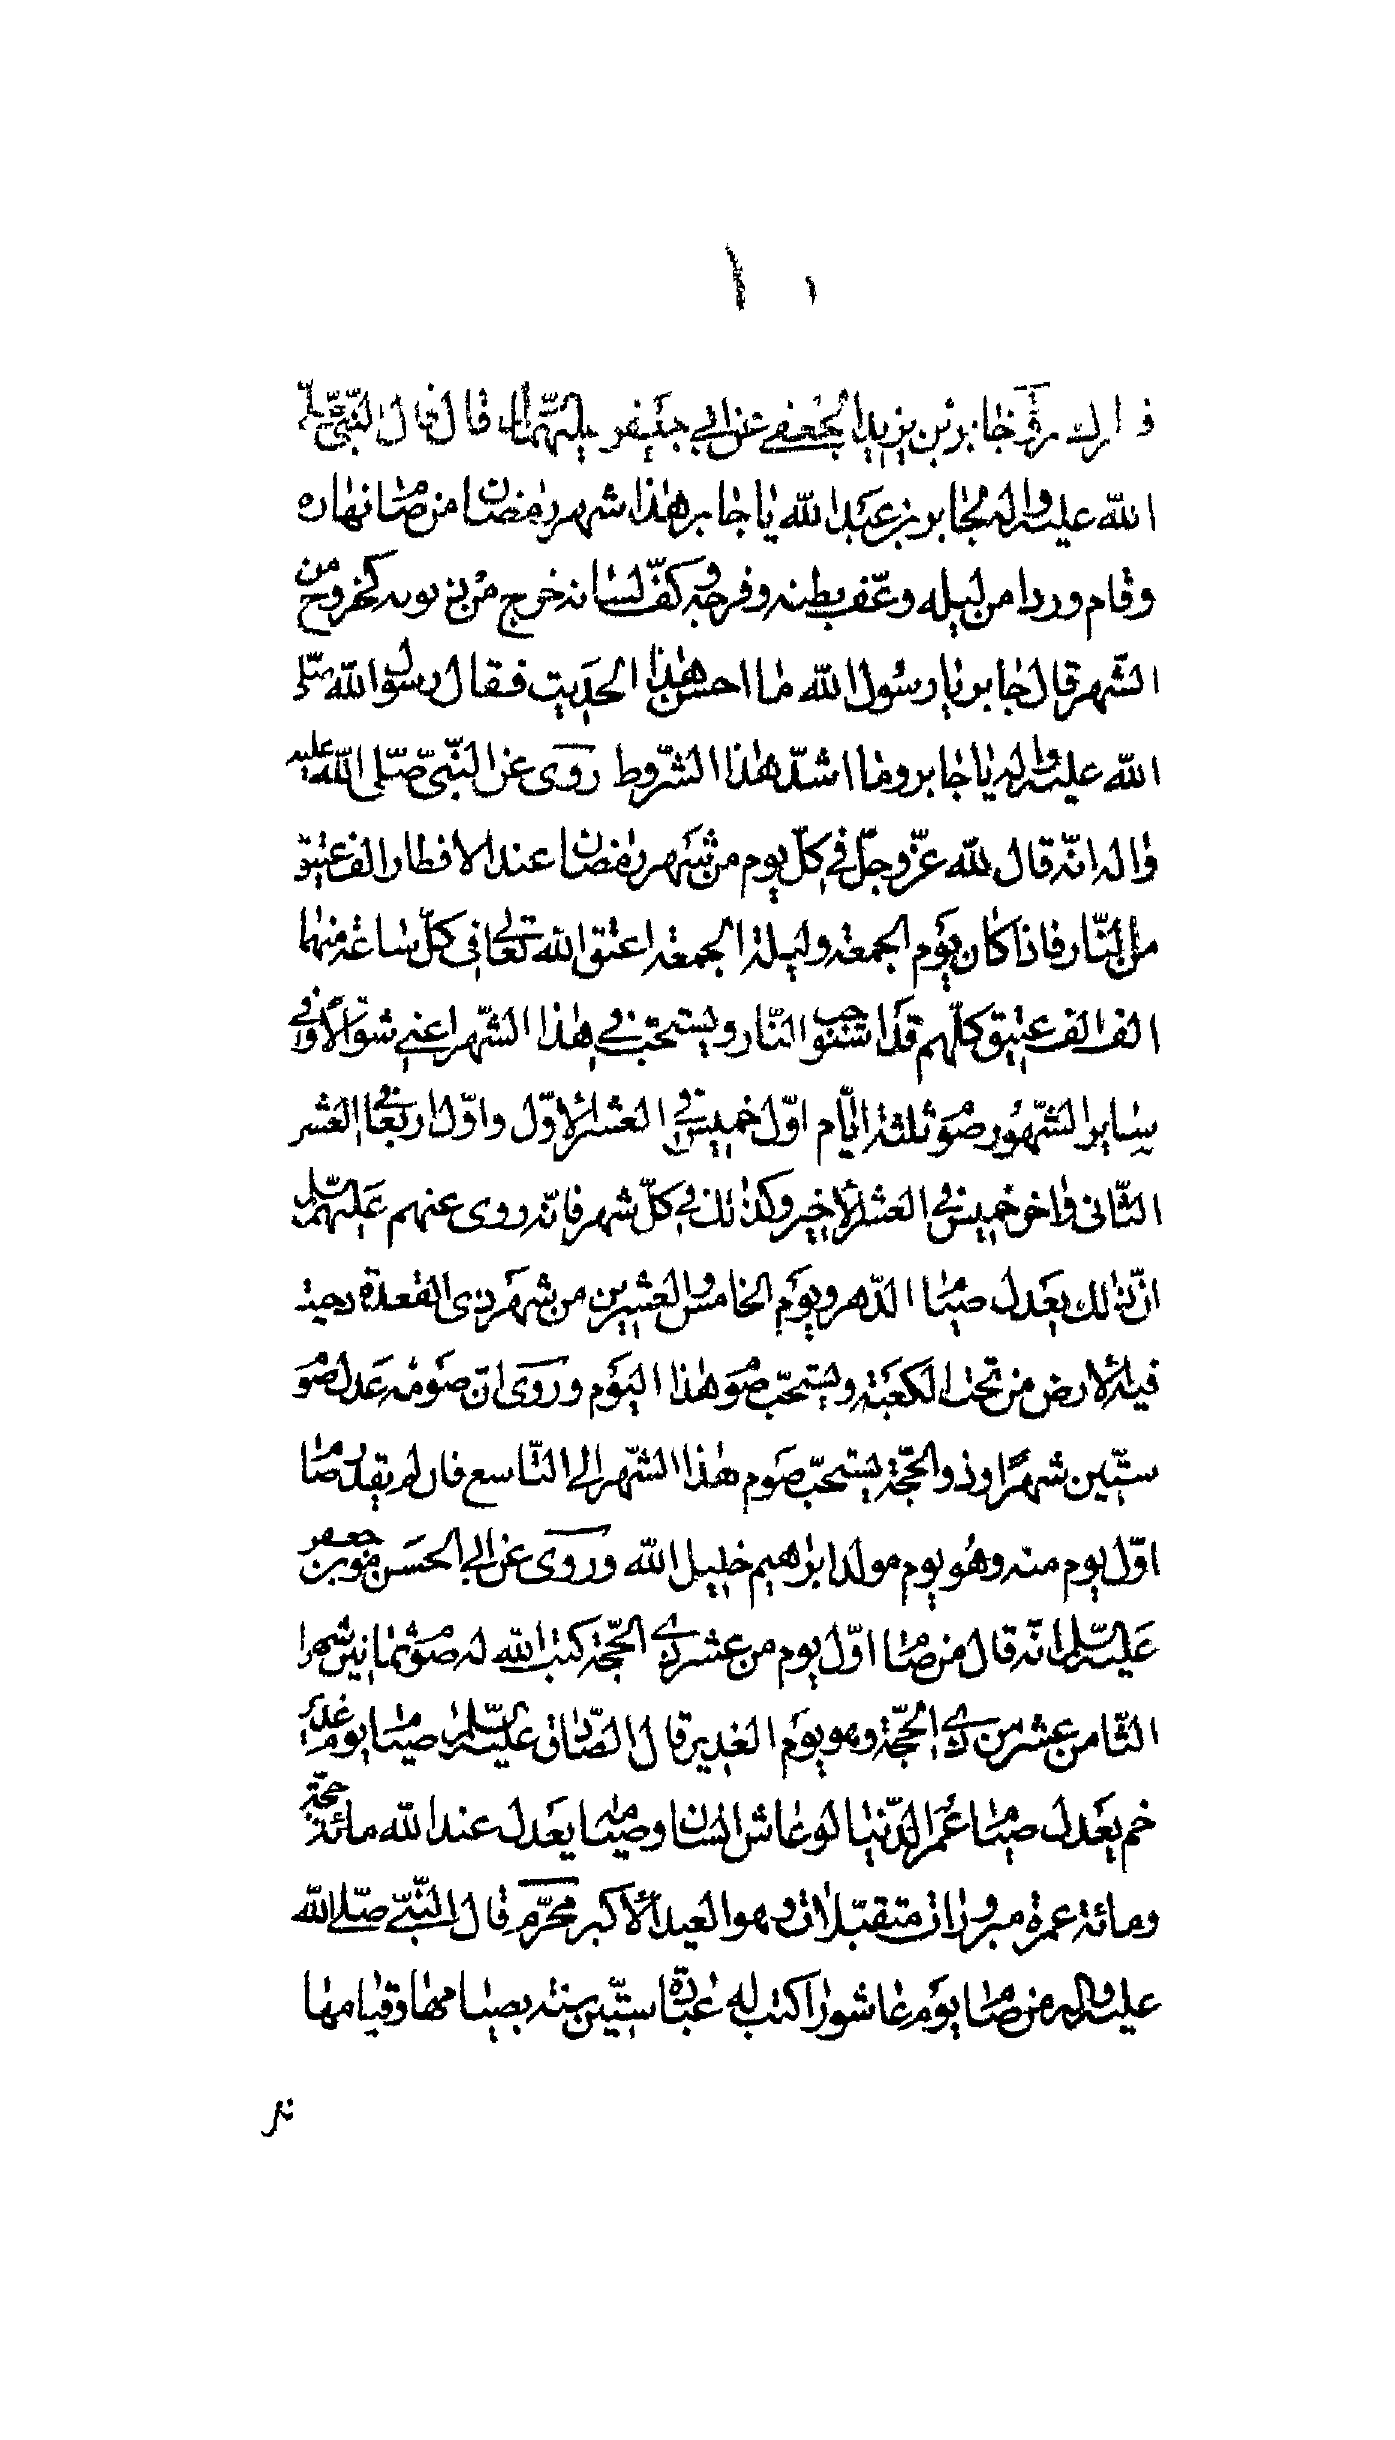 روى جابر بن يزيد الجعفي عن ابي جعفر عليهما السلم قال قال النبي صلى
الله عليه واله لجابر بن عبد الله يا جابر هذا شهر رمضان من صام نهاره
وقام وردا من ليله وعف بطنه وفرجه وكف لسانه خرج من ذنوبه كخروجه من
الشهر قال جابر يا رسول الله ما احسن هذا الحديث فقال رسول الله صلى
الله عليه واله يا جابر وما اشد هذا الشروط روى عن النبي صلى الله عليه
واله انه قال لله عز وجل في كل يوم من شهر رمضان عند الافطار الف عتيق
من النار فاذا كان يوم الجمعة وليلة الجمعة اعتق الله تعالى في كل ساعة منهما
الف الف عتيق كلهم قد استوجب النار ويستحب في هذا الشهر اعني شوالا وفي
ساير الشهور صوم ثلثة ايام اول خميس في العشر الاول واول اربعا في العشر
الثاني واخر خميس في العشر الاخير وكذلك في كل شهر فانه روى عنهم عليهم السلم
ان ذلك يعدل صيام الدهر ويوم الخامس والعشرين من شهر ذي القعدة دحيت
فيه الارض من تحت الكعبة ويستحب صوم هذا اليوم وروى ان صومه عدل صوم
ستين شهرا وذو الحجة يستحب صوم هذا الشهر الى التاسع فان لم يقدر صام
اول يوم منه وهو يوم مولد ابراهيم خليل الله وروى عن ابي الحسن موسى بن جعفر
عليه السلم انه قال من صام اول يوم من عشر ذي الحجة كتب الله له صوم ثمانين شهرا
الثامن عشر من ذي الحجة وهو يوم الغدير قال الصادق عليه السلم صيام يوم غدير
خم يعدل صيام عمر الدنيا لو عاش انسان وصيامه يعدل عند الله مائة حجة
ومائة عمرة مبرورات متقبلات وهو العيد الاكبر محرم قال النبي صلى الله
عليه واله من صام يوم عاشورا كتب له عبادة ستين سنة بصيامها وقيامها